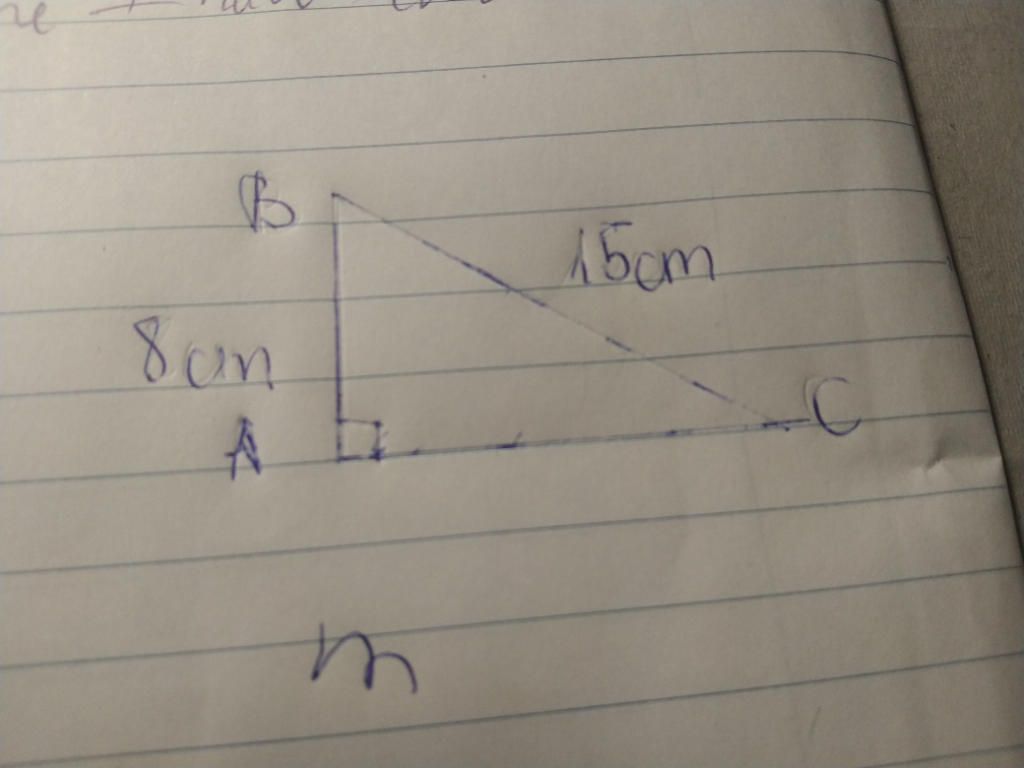 B
15cm
8cm
C
A
m